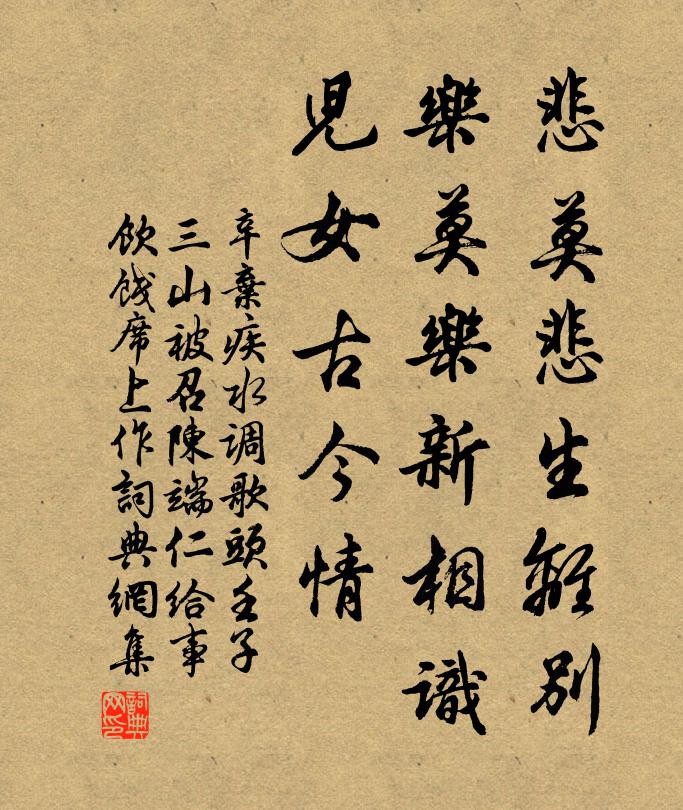 悲莫悲生離別
樂莫樂新相識
兒女古今情
辛棄疾水调歌頭壬子
三山被召陳端仁給事
飲餞席上作詞典網集
詞典
网印